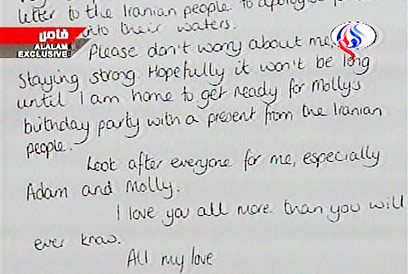 letter to the Iranian people to apologise
into their waters.
خاص
ALALAM
EXCLUSIVE
Please don't worry about me,
staying strong. Hopefully it won't be long
until I am home to get ready for Molly's
birthday party with a present from the Iranian
people.
Look after everyone for me, especially
Adam and Molly.
I love you all more than you will
ever know.
All my love